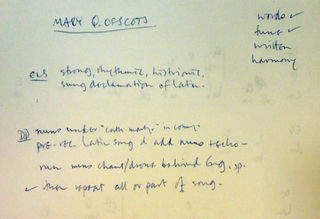 MARY Q. OF SCOTS
words ✓
tune ✓
written
harmony
strong, rhythmic, histrionic,
sung declamation of Latin.
nuns under "cath. in
pre-rec Latin song & add nuns
run nuns chant/drone behind Eng. sp.
✓ then repeat all or part of song.